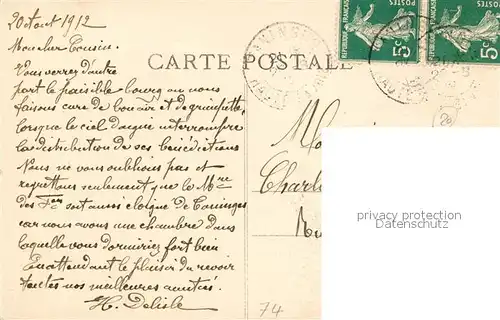 20 Aout 1912
Mon cher Cousin.
Vous verrez d'autre
part le paisible bourg ou nous
faisons cure de bon air et de
lorsque le ciel daigne interrompre
la distribution de ses bénédictions
Nous ne vous oublions pas et
regrettons seulement que le Mre
des Fces soit aussi éloigné de Taninges
car nous avons une chambre dans
laquelle vous dormiriez fort bien
En attendant le plaisir du revoir
toutes nos meilleures amitiés.
H. Delisle
CARTE POSTALE
REPUBLIQUE FRANÇAISE
5c
5c
Charl
privacy protection
Datenschutz
74